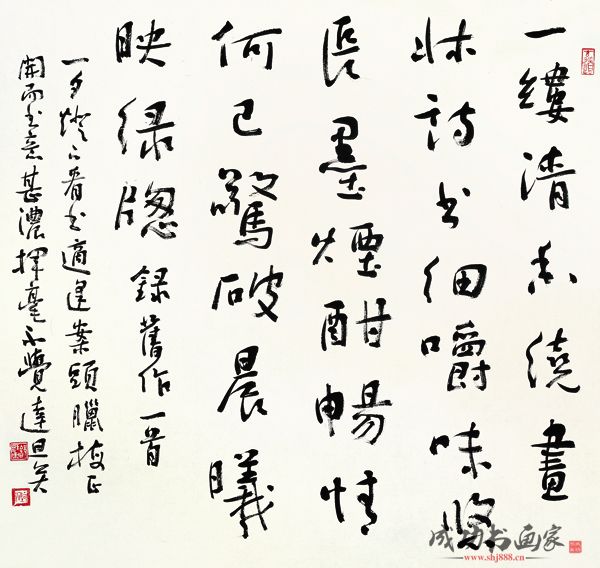 一縷清香繞畫
牀詩書細嚼味悠
長墨煙酣暢情
何已驚破晨曦
映綠牕 錄舊作一首
一夕燈下看書適逢案頭臘梅正
開而書意甚濃揮毫不覺達旦矣
成功书画家
www.shj888.cn